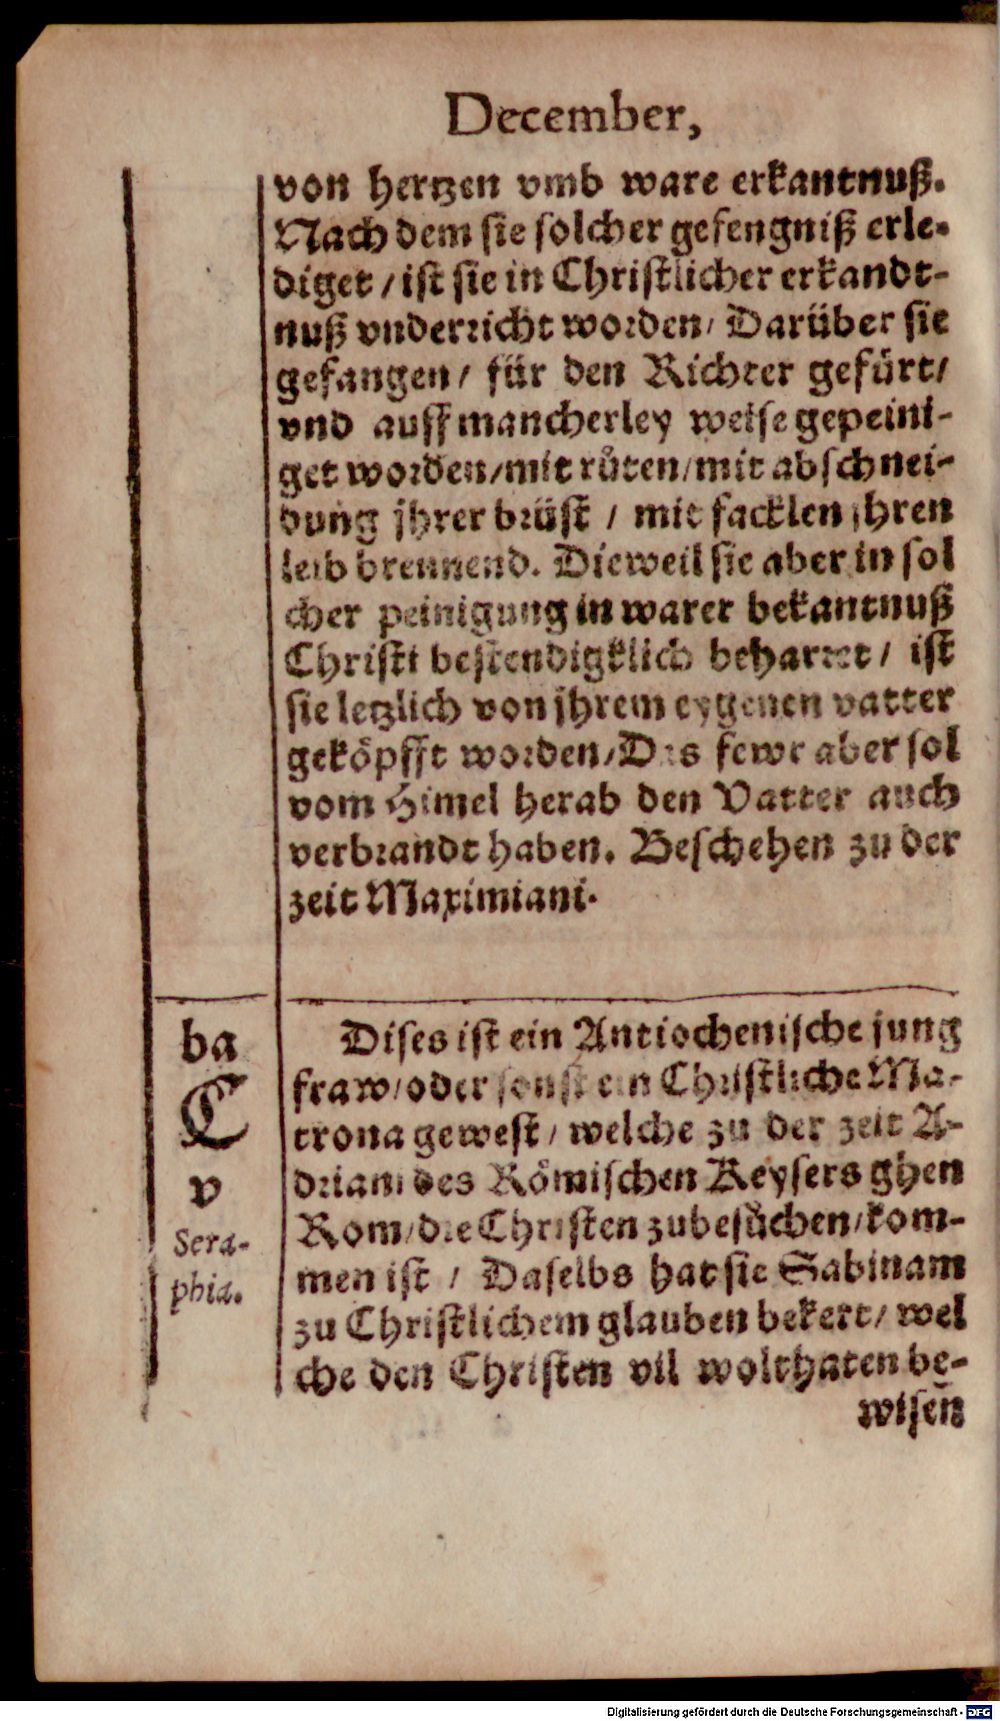 December,
von hertzen vmb ware erkantnuß.
Nach dem sie solcher gefengniß erle-
diget / ist sie in Christlicher erkandt-
nuß vnderricht worden / Darüber sie
gefangen / für den Richter gefürt /
vnd auff mancherley weise gepeini-
get worden / mit růten / mit abschnei-
dung jhrer brüst / mit facklen jhren
leib brennend. Dieweil sie aber in sol
cher peinigung in warer bekantnuß
Christi bestendigklich beharret / ist
sie letzlich von jhrem eygenen vatter
geköpfft worden / Das fewr aber sol
vom Himel herab den Vatter auch
verbrandt haben. Beschehen zu der
zeit Maximiani.
ba
C
v
Sera-
phia.
Dises ist ein Antiochenische jung
fraw / oder sonst ein Christliche Ma-
trona gewest / welche zu der zeit A-
driani des Römischen Keysers ghen
Rom / die Christen zubesůchen / kom-
men ist / Daselbs hat sie Sabinam
zu Christlichem glauben bekert / wel
che den Christen vil wolthaten be-
wisen
Digitalisierung gefördert durch die Deutsche Forschungsgemeinschaft - DFG